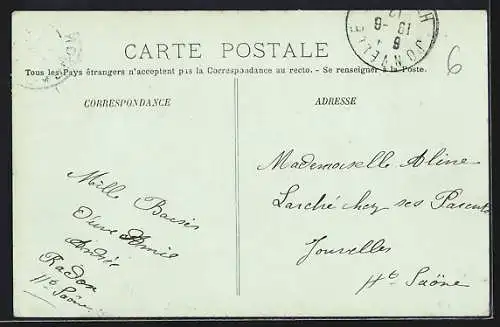 CARTE POSTALE
Tous les Pays étrangers n'acceptent pas la Correspondance au recto. - Se renseigner à la Poste.
CORRESPONDANCE
ADRESSE
6
Mademoiselle Aline
Larché chez ses Parents
Jonvelles
Hte Saône
Mille Baisers
d'une Amie
Andrée
Radon
Hte Saône
JONVELLE